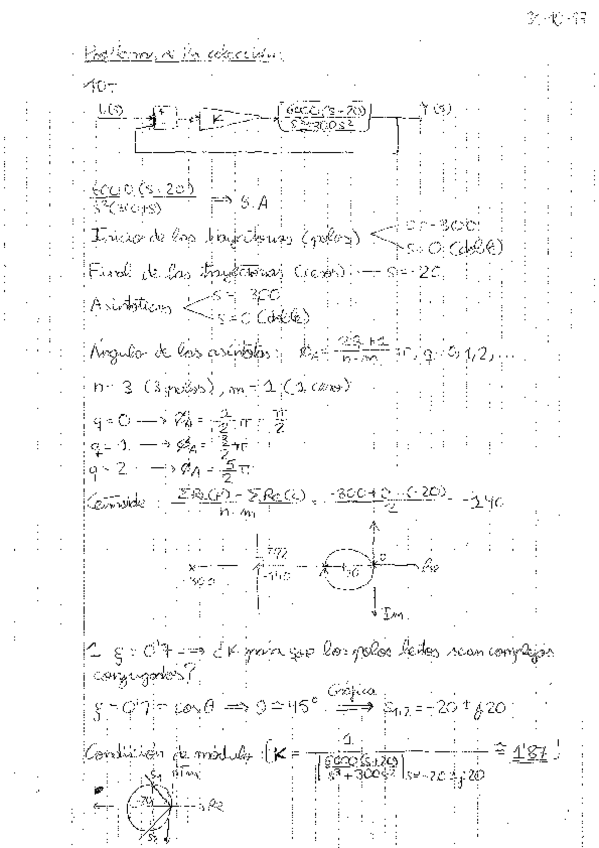 31-10-97
Problemas de la colección:
10-
U(s) + K 6000(s+20) Y(s)
s³+300s²
6000(s+20) → S.A
s²(300+s)
Inicio de las trayectorias (polos) s=-300
s=0 (doble)
Final de las trayectorias (ceros) → s=-20
Asintóticas s= 300
s=0 (doble)
Ángulo de las asíntotas: ϕA = 2q+1 π, q=0,1,2,...
n-m
n=3 (3 polos), m=1 (1 cero)
q=0 → ϕA = 1/2 π = π/2
q=1 → ϕA = 3/2 π
q=2 → ϕA = 5/2 π
Centroide: ΣRe(P) - ΣRe(C) = -300+0-(-20) = -140
n-m 2
-300 -140 0 Re
Im
1 ξ=0'7 → ¿K para que los polos lentos sean complejos
conjugados?
ξ=0'7=cosθ ⇒ θ≅45° Gráfica ⇒ s1,2=-20±j20
Condición de módulo: K = 1 ≅ 1'87
6000(s+20)
s³+300s² s=-20±j20
s1 Im
-20 Re
s2